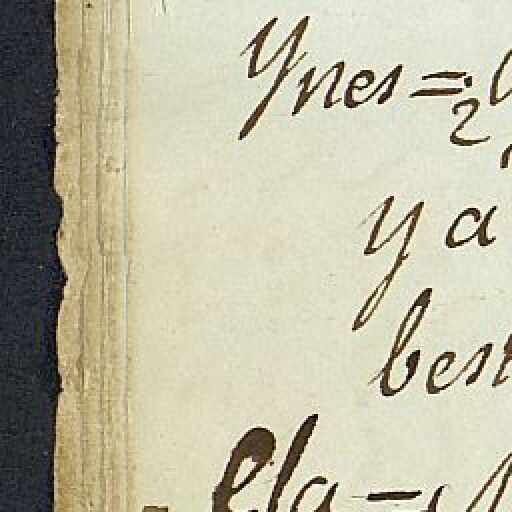 Ynes =
y a
bes
Ela —